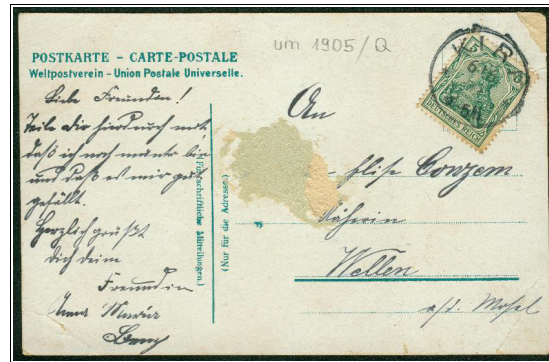 um 1905/Q
POSTKARTE – CARTE-POSTALE
Weltpostverein – Union Postale Universelle.
Liebe Freundin!
Teile dir hierdurch mit,
daß ich noch munter bin
und daß es mir gut
gefällt.
Herzlich grüßt
dich deine
Freundin
Anna Maria
(Für schriftliche Mitteilungen.)
(Nur für die Adresse.)
DEUTSCHES REICH
An
Elise Conzem
Näherin
Wellen
a/d. Mosel